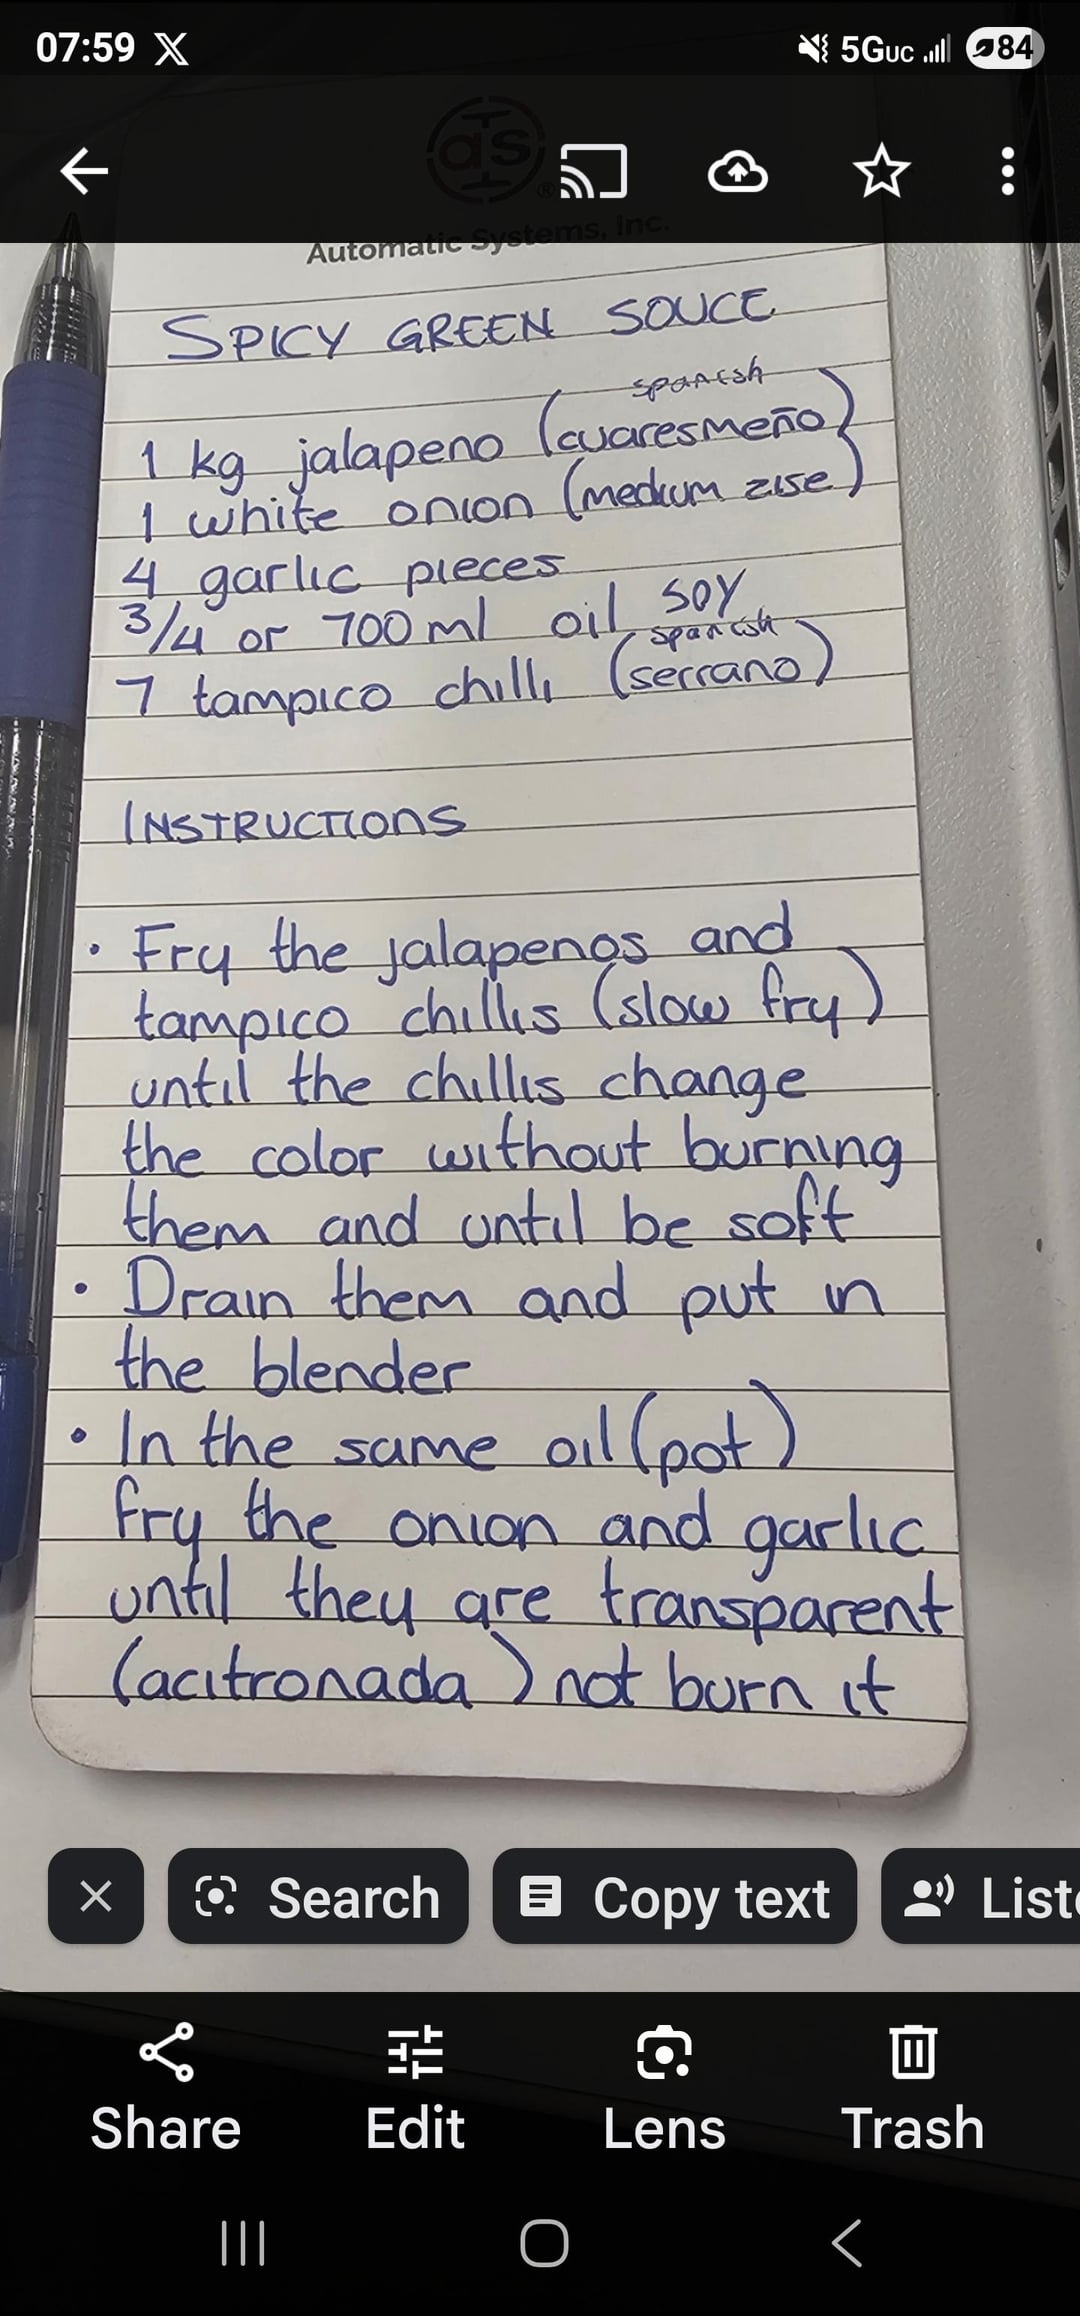 07:59 X 5GUC 84
as ®
Automatic Systems, Inc.
SPICY GREEN SOUCE
spanish
1 kg jalapeno (cuaresmeño)
1 white onion (medium zise)
4 garlic pieces
3/4 or 700 ml oil SOY
spanish
7 tampico chilli (serrano)
INSTRUCTIONS
• Fry the jalapenos and
tampico chillis (slow fry)
until the chillis change
the color without burning
them and until be soft
• Drain them and put in
the blender
• In the same oil (pot)
fry the onion and garlic
until they are transparent
(acitronada) not burn it
Search Copy text List
Share Edit Lens Trash